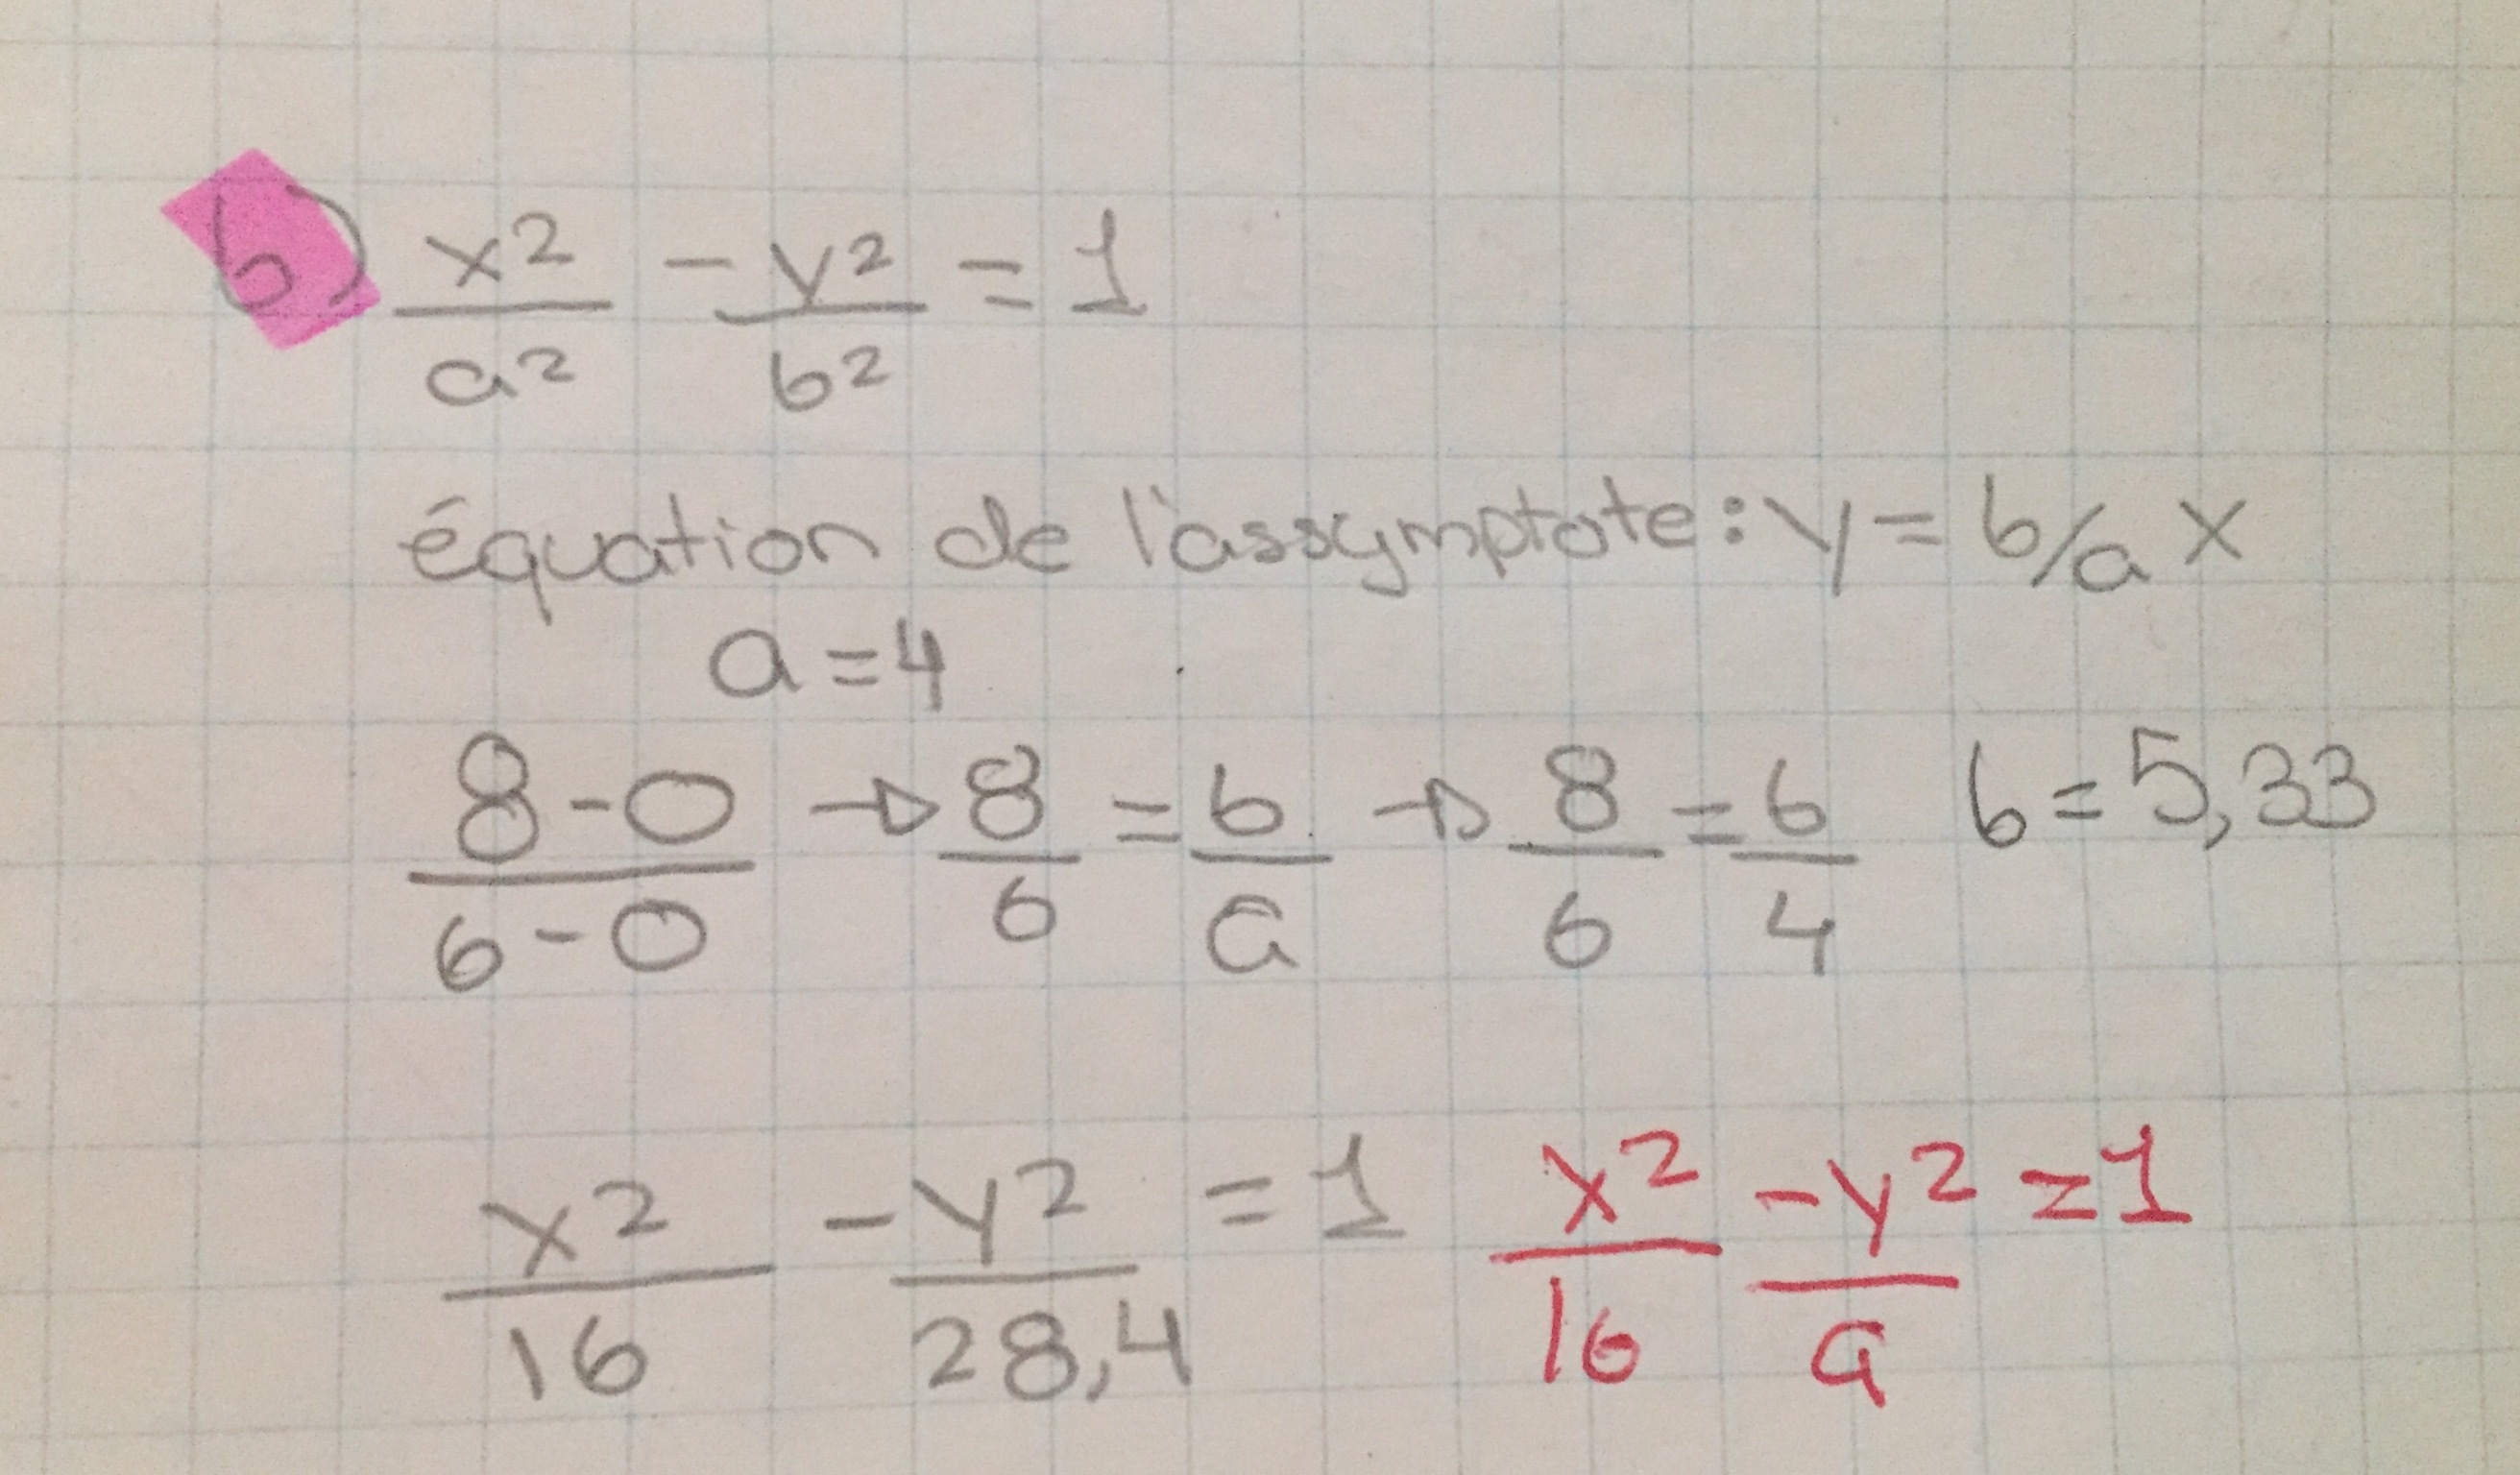 b) x²/a² - y²/b² = 1
équation de l'assymptote: y = b/a x
a = 4
8-0/6-0 → 8/6 = b/a → 8/6 = b/4 b = 5,33
x²/16 - y²/28,4 = 1 x²/16 - y²/9 = 1